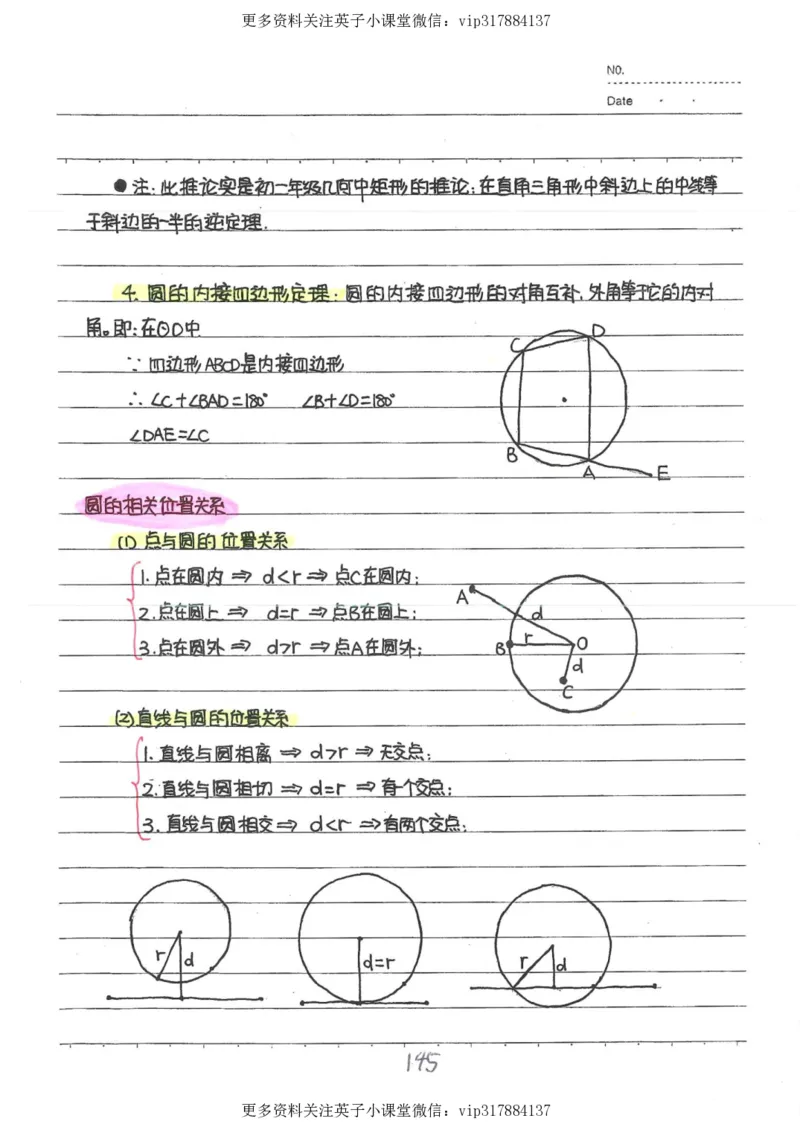 更多资料关注英子小课堂微信：vip317884137
NO.
Date
●注：此推论实是初二年级几何中矩形的推论：在直角三角形中斜边上的中线等
于斜边的一半的逆定理.
4. 圆的内接四边形定理：圆的内接四边形的对角互补，外角等于它的内对
角。即：在⊙O中
∵ 四边形ABCD是内接四边形
∴ ∠C+∠BAD=180° ∠B+∠D=180°
∠DAE=∠C
C D
B A E
圆的相关位置关系
(1) 点与圆的位置关系
1.点在圆内 ⇒ d<r ⇒ 点C在圆内；
2.点在圆上 ⇒ d=r ⇒ 点B在圆上；
3.点在圆外 ⇒ d>r ⇒ 点A在圆外；
A d
B r O
d
C
(2)直线与圆的位置关系
1.直线与圆相离 ⇒ d>r ⇒ 无交点；
2.直线与圆相切 ⇒ d=r ⇒ 有一个交点；
3.直线与圆相交 ⇒ d<r ⇒ 有两个交点；
r d d=r r d
145
更多资料关注英子小课堂微信：vip317884137